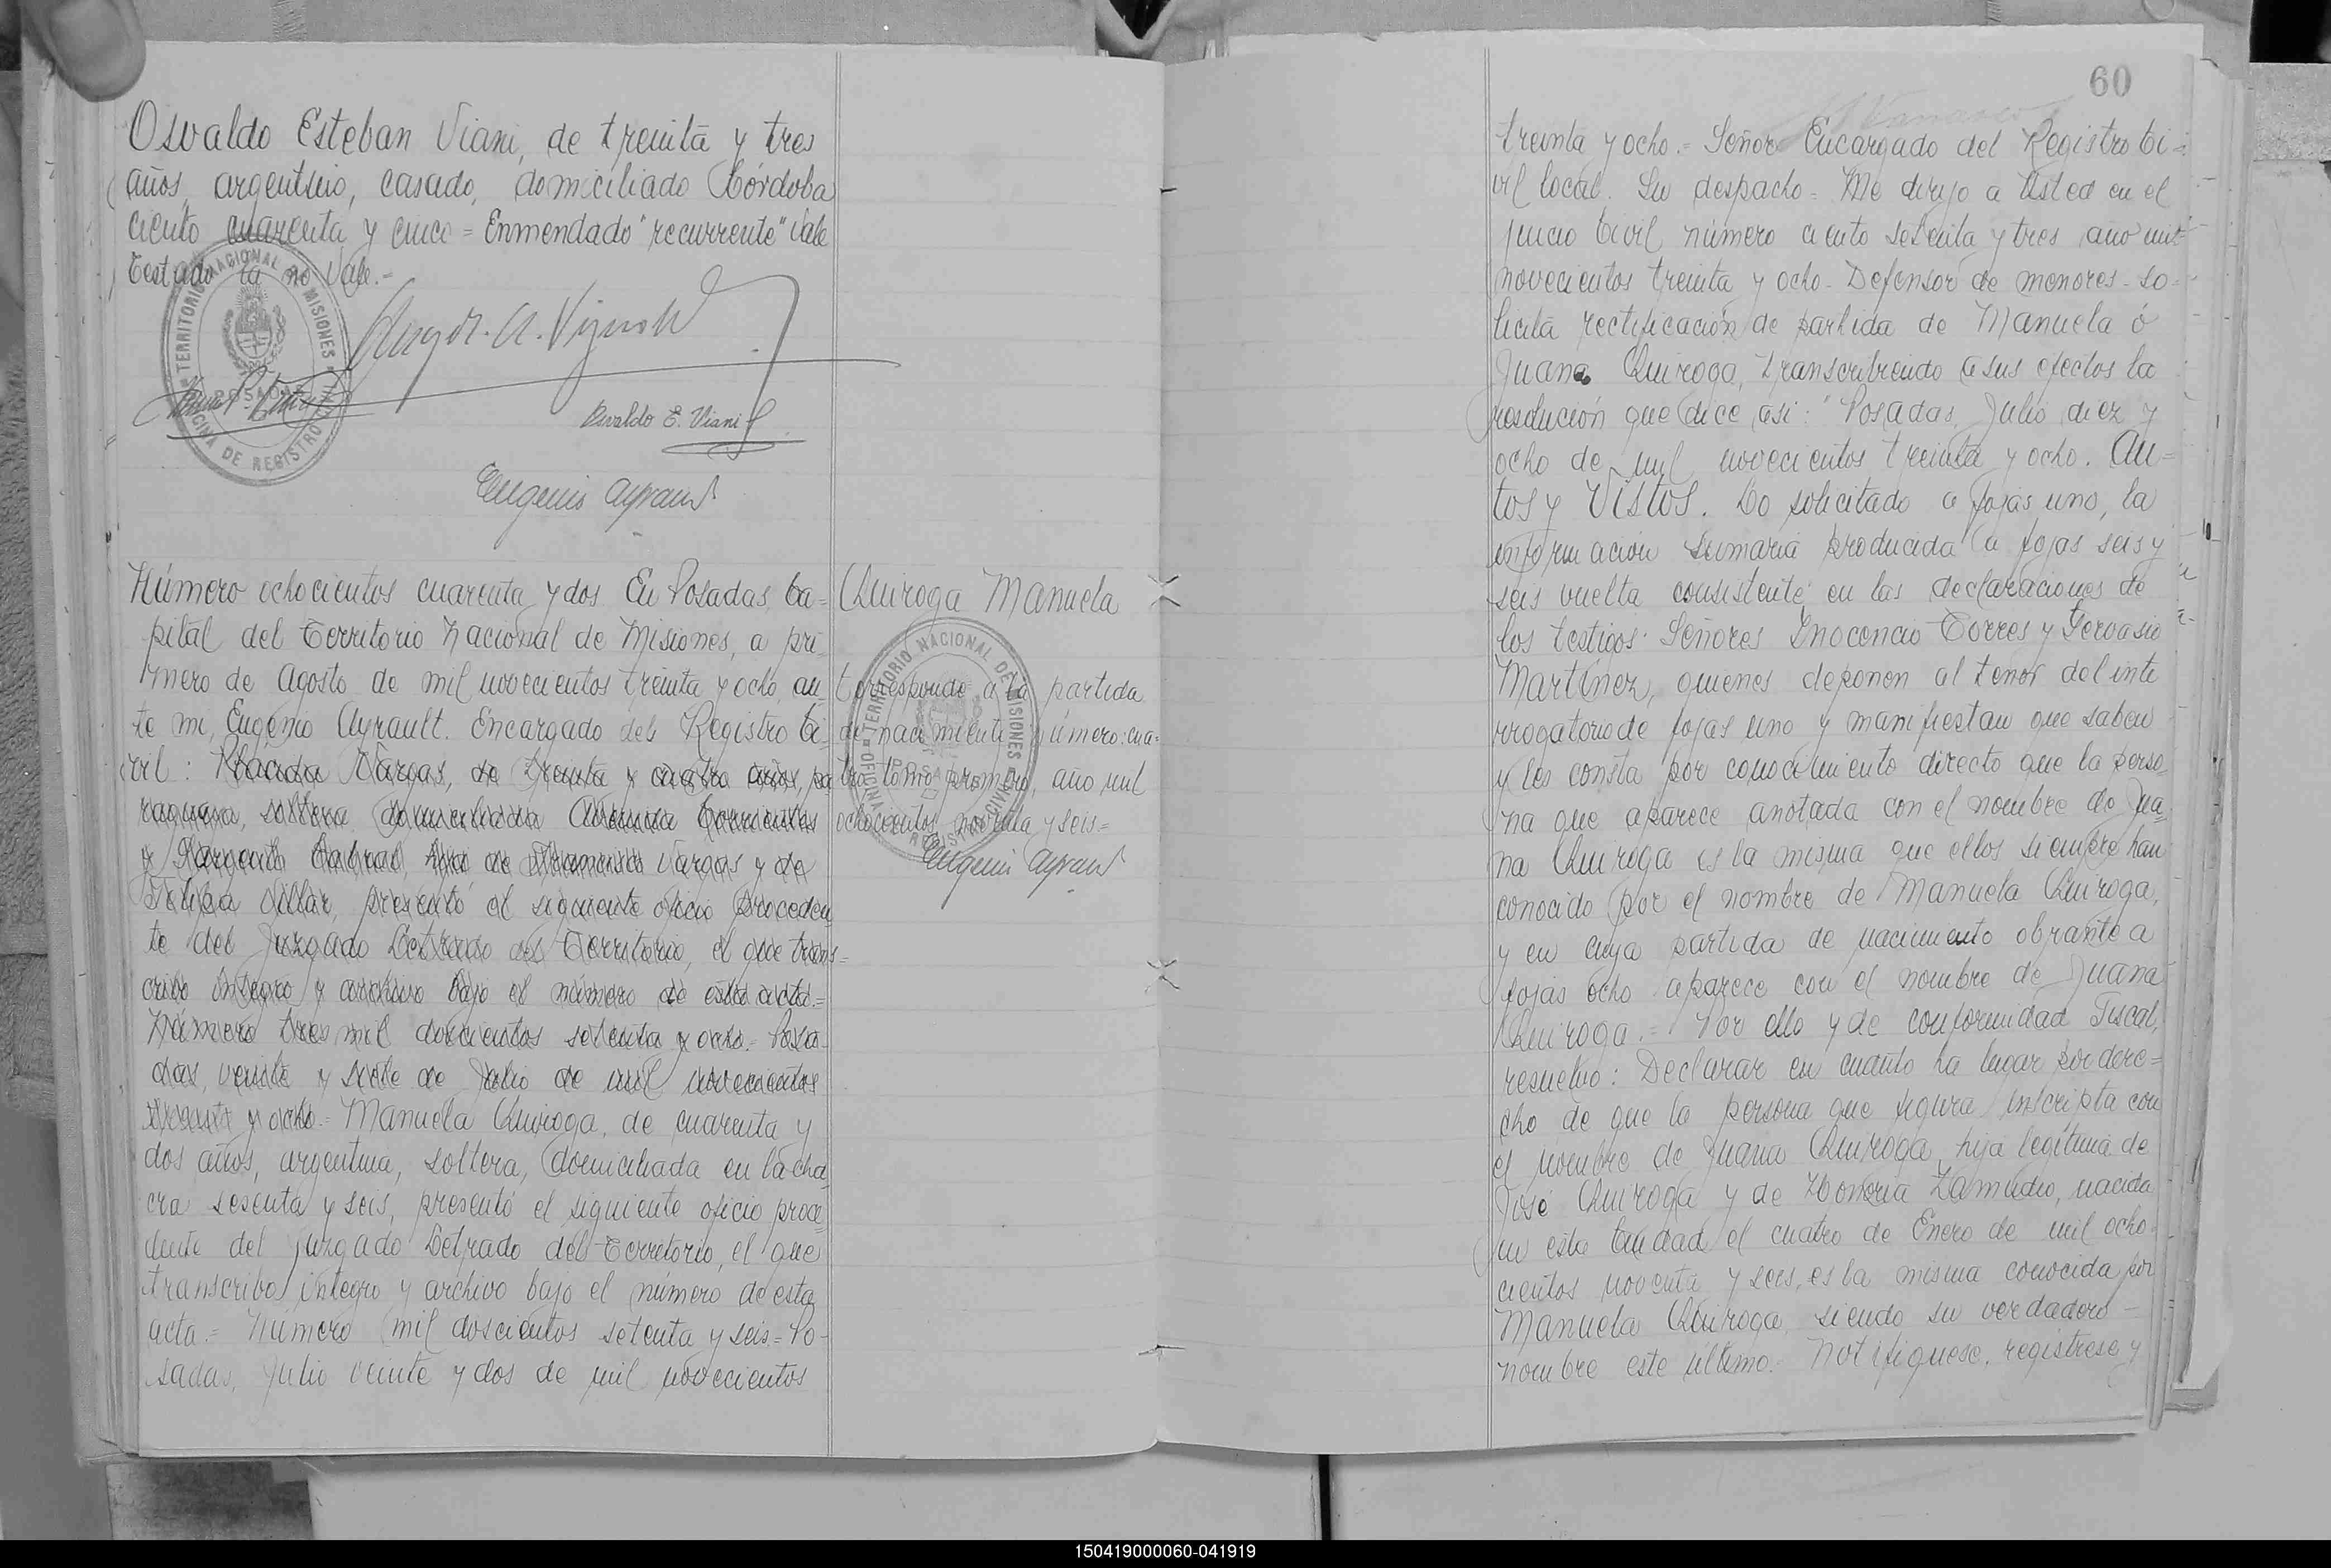 Osvaldo Esteban Viani, de treinta y tres
años, argentino, casado, domiciliado Córdoba
ciento cuarenta y cinco = Enmendado "recurrente" Vale
Testado la no Vale.-
TERRITORIO NACIONAL DE MISIONES
POSADAS
OFICINA DE REGISTRO CIVIL
Osvaldo E. Viani
Eugenio Ayrault
Número ochocientos cuarenta y dos En Posadas, Ca=
pital del Territorio Nacional de Misiones, a pri-
mero de Agosto de mil novecientos treinta y ocho, an-
te mi, Eugenio Ayrault. Encargado del Registro Ci-
vil: Plácida Vargas, de treinta y cuatro años, pa
raguaya, soltera domiciliada Avenida Corrientes
y Sargento Cabral, hija de Vargas y de
Villar, presentó el siguiente oficio proceden
te del Juzgado Letrado del Territorio, el que trans=
cribo integro y archivo bajo el número de esta acta.=
Número tres mil doscientos setenta y ocho.= Posa-
das, veinte y siete de Julio de mil novecientos
treinta y ocho.= Manuela Quiroga, de cuarenta y
dos años, argentina, soltera, domiciliada en la cha
cra sesenta y seis, presentó el siguiente oficio proce-
dente del Juzgado Letrado del Territorio, el que
transcribo integro y archivo bajo el número de esta
acta.= Número mil doscientos setenta y seis = Po-
sadas, Julio veinte y dos de mil novecientos
Quiroga Manuela
Corresponde a la partida
de nacimiento número: cua=
tro tomo primero, año mil
ochocientos noventa y seis=
TERRITORIO NACIONAL DE MISIONES
POSADAS
OFICINA DE REGISTRO CIVIL
Eugenio Ayrault
60
treinta y ocho.= Señor Encargado del Registro Ci-
vil local. Su despacho = Me dirijo a Usted en el
juicio Civil número ciento setenta y tres año mil
novecientos treinta y ocho - Defensor de menores - so-
licita rectificación de partida de Manuela ó
Juana Quiroga, transcribiendo a sus efectos la
resolución que dice asi: "Posadas, Julio diez y
ocho de mil novecientos treinta y ocho. Au=
tos y Vistos. Lo solicitado a fojas uno, la
información sumaria producida a fojas seis y
seis vuelta consistente en las declaraciones de
los testigos: Señores Inocencio Torres y Gervasio
Martínez, quienes deponen al tenor del inte
rrogatorio de fojas uno y manifiestan que saben
y les consta por conocimiento directo que la perso-
na que aparece anotada con el nombre de Jua-
na Quiroga es la misma que ellos siempre han
conocido por el nombre de Manuela Quiroga,
y en cuya partida de nacimiento obrante a
fojas ocho aparece con el nombre de Juana
Quiroga.= Por ello y de conformidad Fiscal,
resuelvo: Declarar en cuanto ha lugar por dere=
cho de que la persona que figura inscripta con
el nombre de Juana Quiroga, hija legítima de
José Quiroga y de Honoria Zamudio, nacida
en esta Ciudad el cuatro de Enero de mil ocho-
cientos noventa y seis, es la misma conocida por
Manuela Quiroga, siendo su verdadero -
nombre este último.- Notifíquese, regístrese y
150419000060-041919